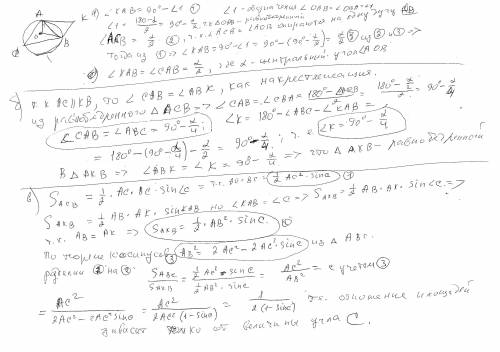 а) ∠KAB = 90° - ∠1 ① ∠1 - обозначен ∠OAB = ∠OBA
∠1 = (180-α)/2 = 90° - α/2, т.к. ΔOAB - равнобедренный
∠ACB = α/2 ②, т.к. ∠ACB и ∠AOB опираются на одну дугу AB
Тогда из ① => ∠KAB = 90° - ∠1 = 90° - (90° - α/2) = α/2 из ② и ① =>
∠KAB = ∠CAB = α/2, где α - центральный угол AOB
б) т.к. AC∥KB, то ∠CAB = ∠ABK, как накрестлежащие.
из равнобедренного ΔACB => ∠CAB = ∠CBA = (180° - ∠ACB)/2 = (180° - α/2)/2 = 90° - α/4
∠CAB = ∠ABC = 90° - α/4; ∠K = 180° - ∠ABC - ∠KAB =
= 180° - (90° - α/4) - α/2 = 90° - α/4; т.е. ∠K = 90° - α/4
В ΔAKB => ∠ABK = ∠K = 90 - α/4 => что ΔAKB - равнобедренный
в) S_ACB = 1/2 · AC · BC · sin∠C = т.к. AC = BC = 1/2 AC² · sinC ①
S_AKB = 1/2 AB · AK · sin KAB но ∠KAB = ∠C => S_AKB = 1/2 AB · AK · sin∠C =>
т.к. AB = AK => S_AKB = 1/2 · AB² · sinC ②
По теореме косинусов ③ AB² = 2AC² - 2AC² · sinC из ΔABC.
разделим ② на ① S_ABC/S_AKB = (1/2 AC² · sinC)/(1/2 AB² · sinC) = AC²/AB² = с учетом ③
= AC²/(2AC² - 2AC² sinC) = AC²/(2AC²(1 - sinC)) = 1/(2(1 - sinC)) т.к. отношение площадей
зависит только от величины угла C.